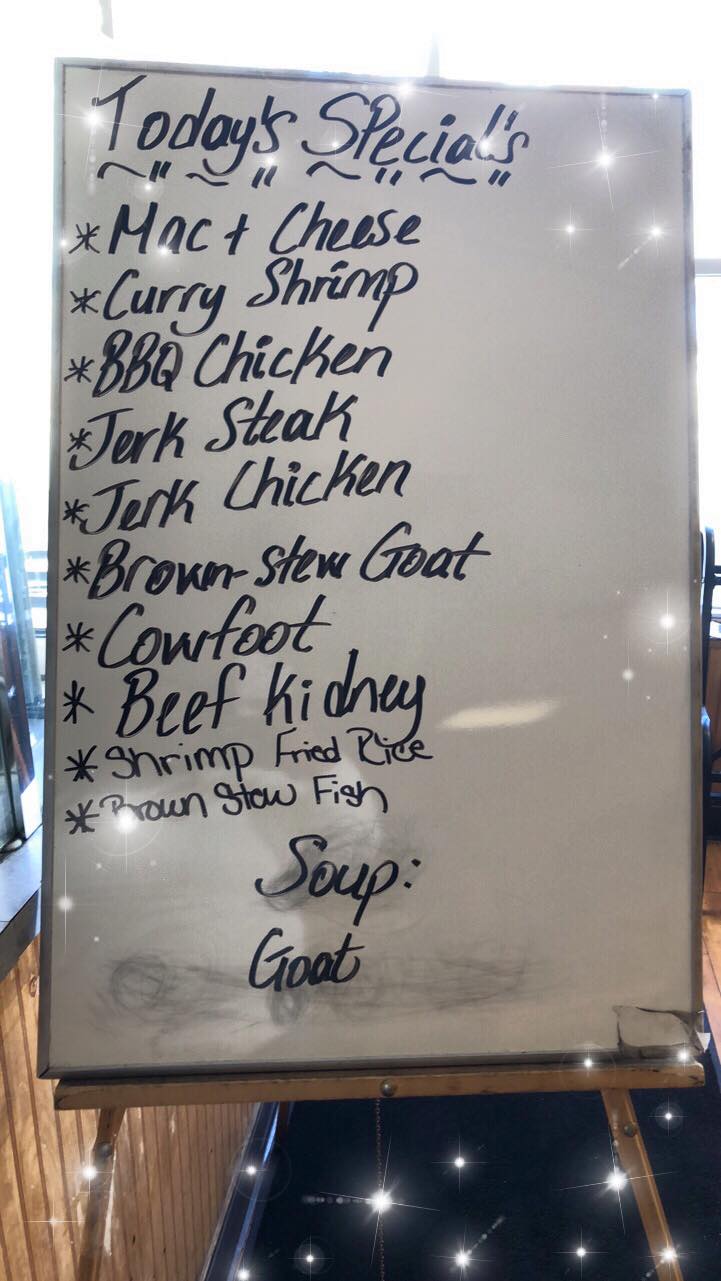 Today's Special's
* Mac + Cheese
* Curry Shrimp
* BBQ Chicken
* Jerk Steak
* Jerk Chicken
* Brown-Stew Goat
* Cowfoot
* Beef Kidney
* Shrimp Fried Rice
* Brown Stow Fish
Soup:
Goat